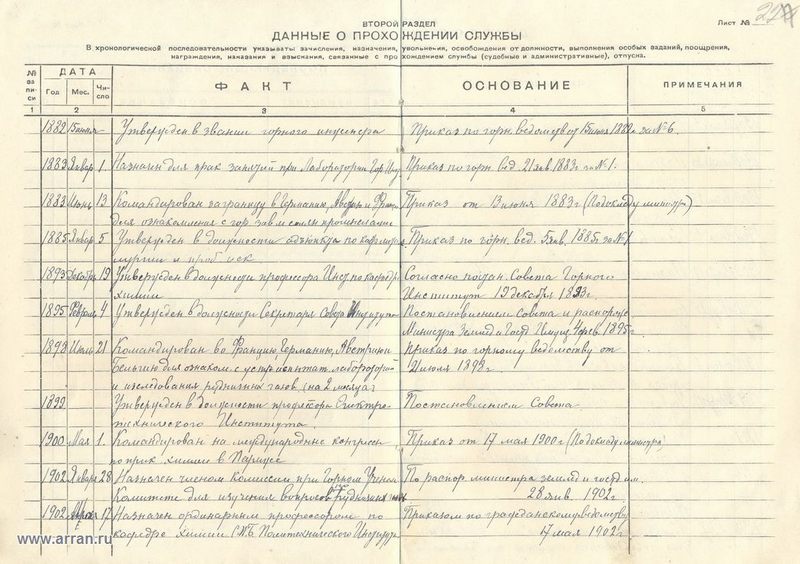 ВТОРОЙ РАЗДЕЛ
Лист № 22
ДАННЫЕ О ПРОХОЖДЕНИИ СЛУЖБЫ
В хронологической последовательности указывать зачисления, назначения, увольнения, освобождения от должности, выполнения особых заданий, поощрения,
награждения, наказания и взыскания, связанные с прохождением службы (судебные и административные), отпуска.
№ записи ДАТА Год Мес. Число ФАКТ ОСНОВАНИЕ ПРИМЕЧАНИЯ
1 2 3 4 5
1882 15 июня Утвержден в звании горного инженера Приказ по горн. ведомству от 15 июня 1882 г. за № 6.
1883 Январ 1 Назначен для прак занятий при Лаборатории Гор. Инс. Приказ по горн. вед. 21 янв 1883 г. № 1.
1883 Июнь 13 Командирован заграницу в Германию, Австрию и Фран. Приказ от 13 июня 1883 г (По докладу министру)
для ознакомления с гор. зав.
1885 Январ 5 Утвержден в должности адъюнкта по каф. металлургии Приказ по горн. вед. 5 янв. 1885 г. за № 1
лургии и проб. иск
1893 Декабрь 19 Утвержден в должности профессора Инст. по кафедре Согласно постан. Совета Горного
химии Института 19 декабря 1893 г.
1895 Феврал 4 Утвержден в должности Секретаря Совета Института Постановлением Совета и распоряж.
Министра Землед и Госуд. Имущ. 4 фев. 1895 г.
1898 Июль 21 Командирован во Францию, Германию, Австрию и Приказ по горному ведомству от
Бельгию для ознаком. с устр. испытат. лабораторий 21 июля 1898 г.
и исследования рудничных газов (на 2 месяца)
1899 Утвержден в должности профессора Електро- Постановлением Совета
технического Института.
1900 Мая 1. Командирован на международные конгрессы Приказ от 17 мая 1900 г. (По докладу министра)
по прик. химии в Париже
1902 Января 28 Назначен членом комиссии при Горном Ученом По распор. министра землед и госуд. им.
Комитете для изучения вопросов о рудничных 28 янв. 1902 г.
1902 17 Назначен ординарным профессором по Приказом по гражданскому ведомству
кафедре химии С.П.Б. Политехнического Института 17 мая 1902 г.
www.arran.ru